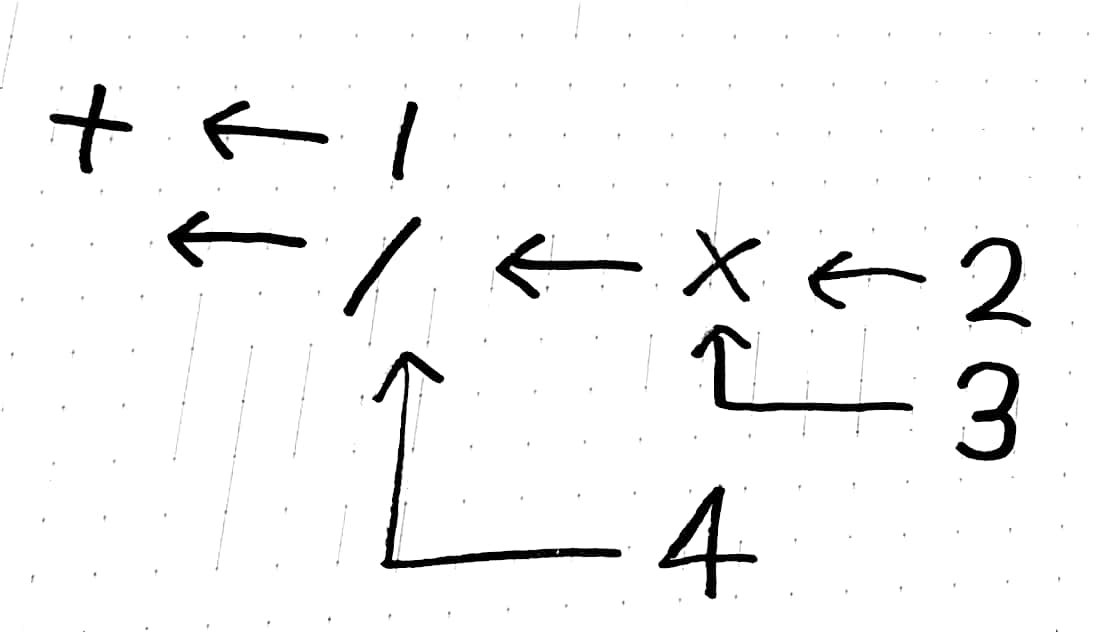 + ← 1
← / ← × ← 2
3
4